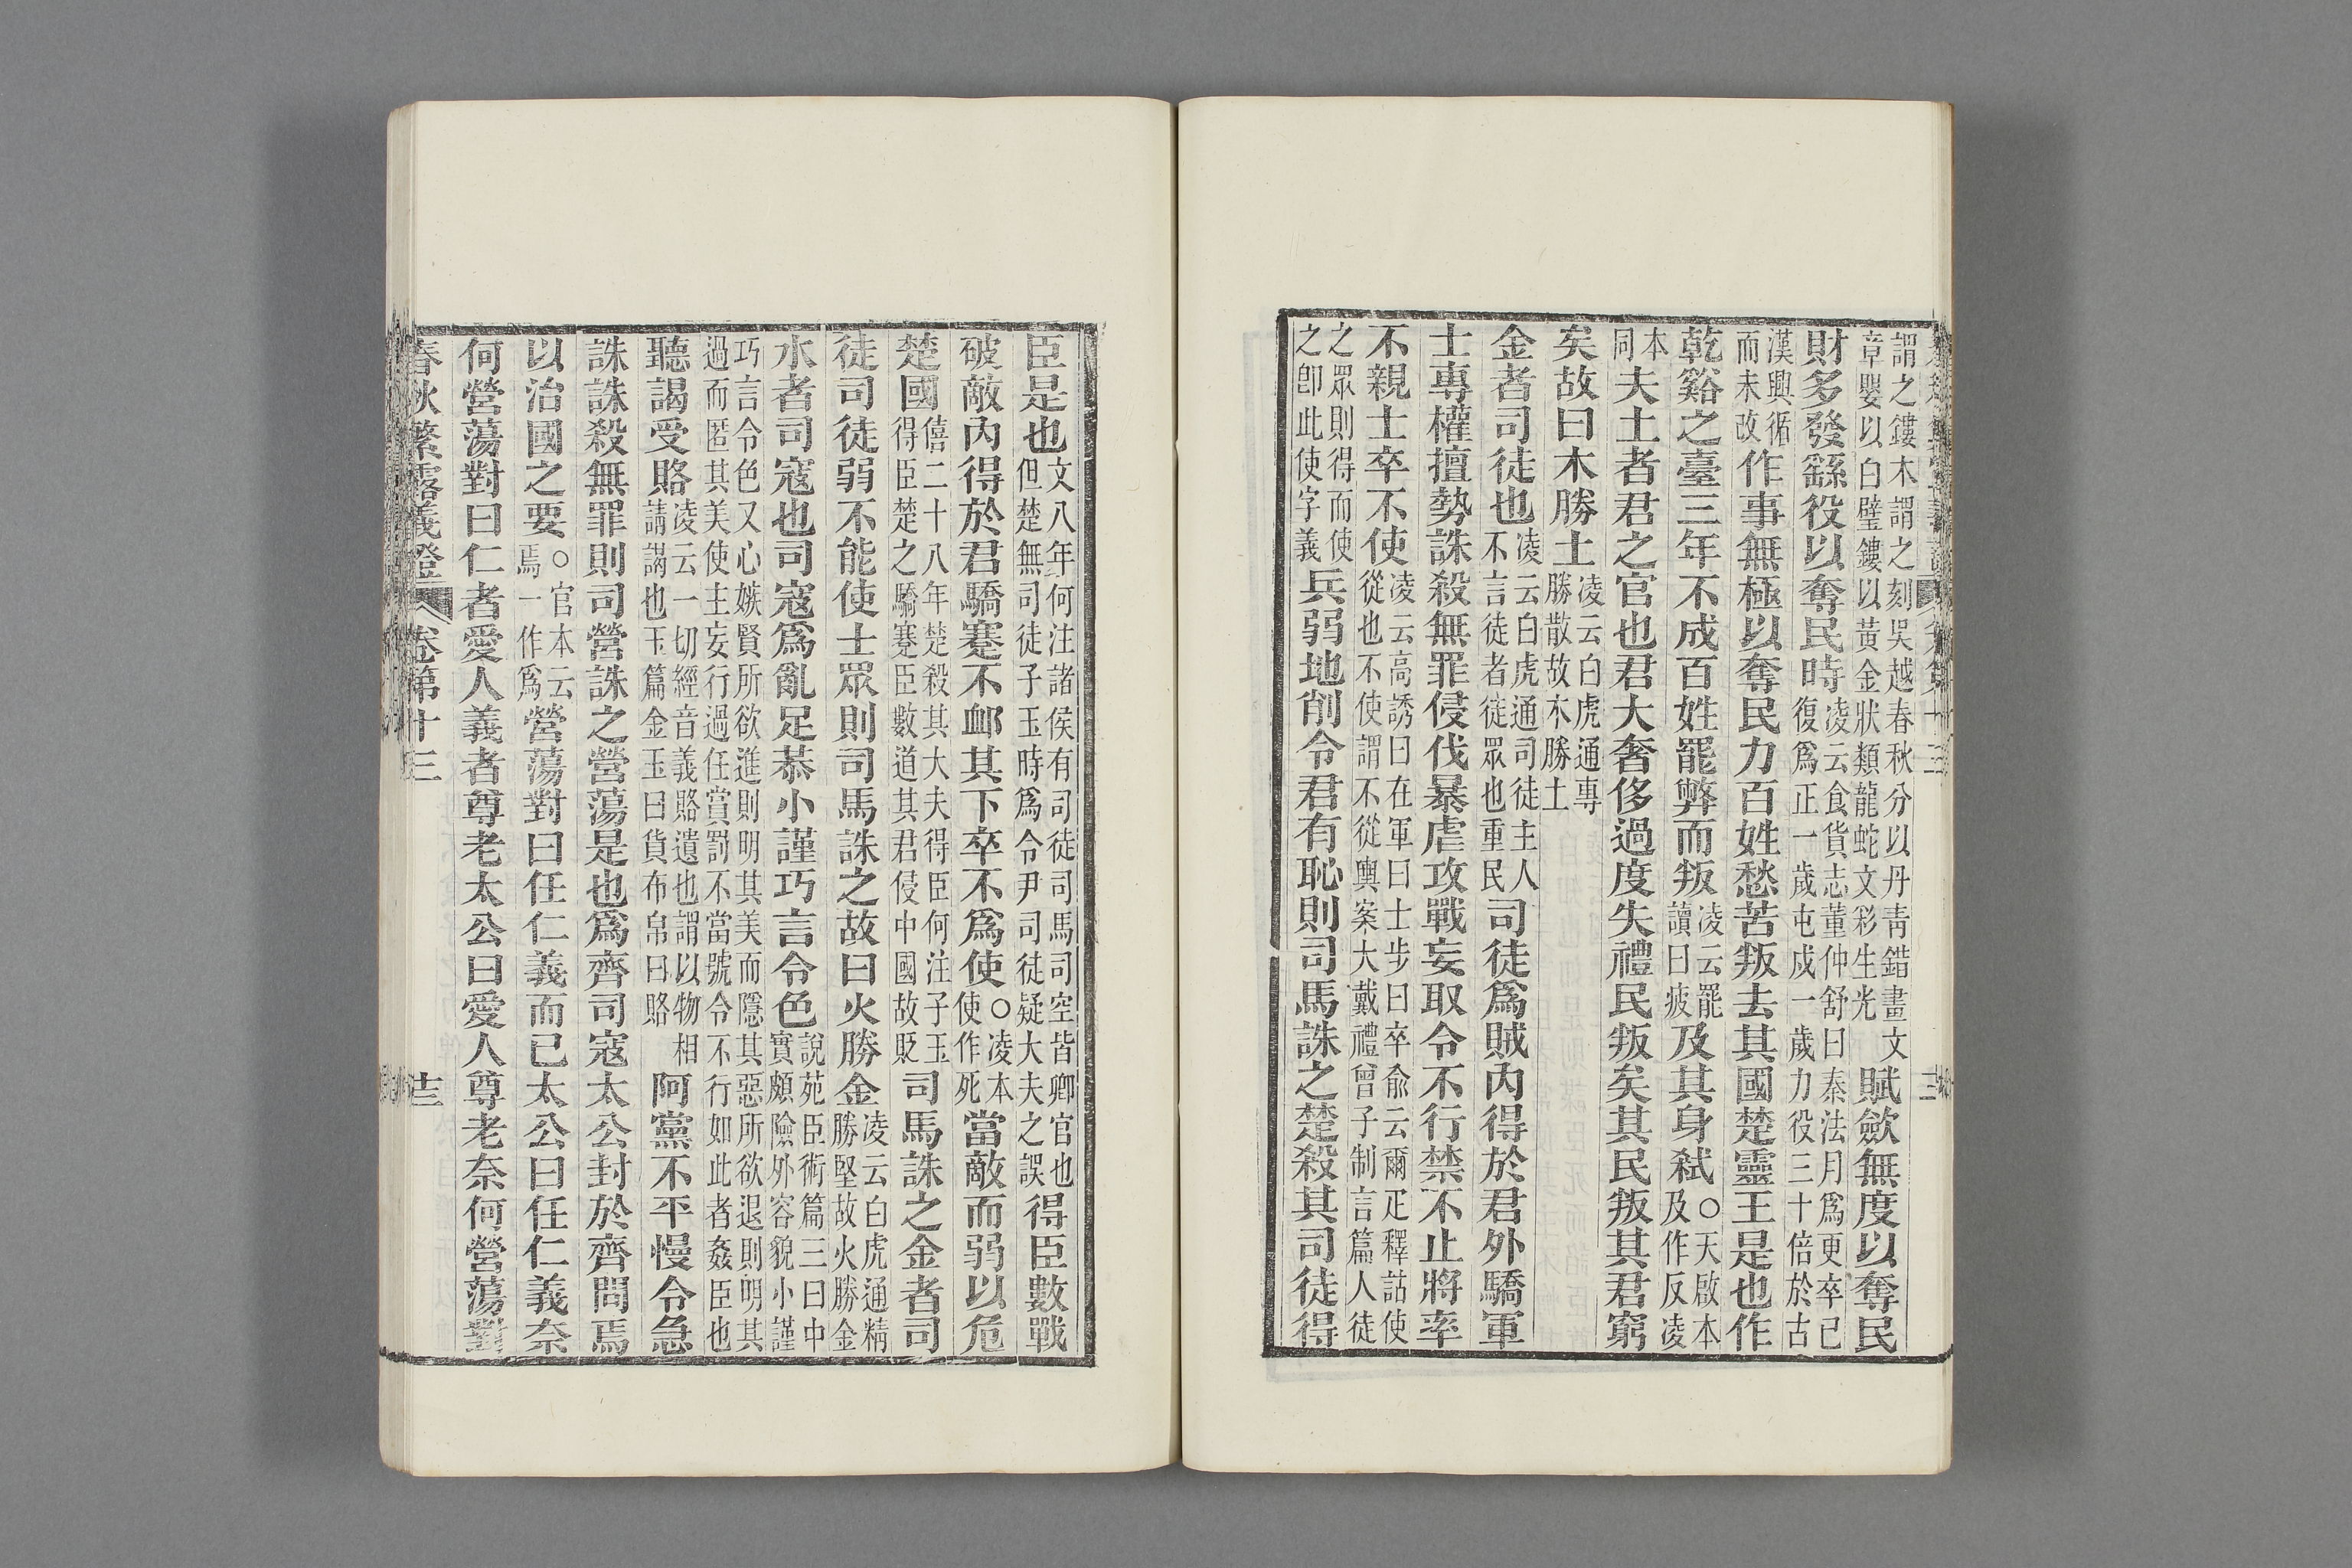 謂之鏤木謂之刻吳越春秋分以丹靑錯畫文章嬰以白璧鏤以黃金狀類龍蛇文彩生光賦歛無度以奪民
財多發繇役以奪民時凌云食貨志董仲舒曰秦法月爲更卒已復爲正一歲屯戍一歲力役三十倍於古
漢興循而未改作事無極以奪民力百姓愁苦叛去其國楚靈王是也作
乾谿之臺三年不成百姓罷弊而叛凌云罷讀曰疲及其身弒○天啟本及作反凌
本同夫土者君之官也君大奢侈過度失禮民叛矣其民叛其君窮
矣故曰木勝土凌云白虎通專勝散故木勝土
金者司徒也凌云白虎通司徒主人不言徒者徒眾也重民司徒爲賊內得於君外驕軍
士專權擅勢誅殺無罪侵伐暴虐攻戰妄取令不行禁不止將率
不親士卒不使凌云高誘曰在軍曰士步曰卒兪云爾疋釋詁使從也不使謂不從輿案大戴禮曾子制言篇人徒
之眾則得而使之卽此使字義兵弱地削令君有恥則司馬誅之楚殺其司徒得
臣是也文八年何注諸侯有司徒司馬司空皆卿官也但楚無司徒子玉時爲令尹司徒疑大夫之誤得臣數戰
破敵內得於君驕蹇不卹其下卒不爲使○凌本使作死當敵而弱以危
楚國僖二十八年楚殺其大夫得臣何注子玉得臣楚之驕蹇臣數道其君侵中國故貶司馬誅之金者司
徒司徒弱不能使士眾則司馬誅之故曰火勝金凌云白虎通精勝堅故火勝金
水者司寇也司寇爲亂足恭小謹巧言令色說苑臣術篇三曰中實頗險外容貌小謹
巧言令色又心嫉賢所欲進則明其美而隱其惡所欲退則明其過而匿其美使主妄行過任賞罰不當號令不行如此者姦臣也
聽謁受賂凌云一切經音義賂遺也謂以物相請謁也玉篇金玉曰貨布帛曰賂阿黨不平慢令急
誅誅殺無罪則司營誅之營蕩是也爲齊司寇太公封於齊問焉
以治國之要○官本云焉一作爲營蕩對曰任仁義而已太公曰任仁義奈
何營蕩對曰仁者愛人義者尊老太公曰愛人尊老奈何營蕩對
春秋繁露義證 卷第十三 十三